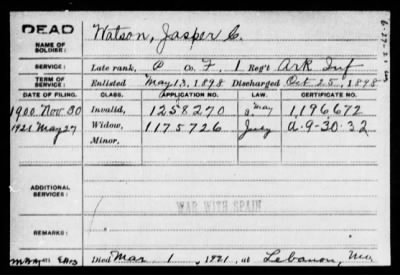 DEAD
NAME OF SOLDIER: Watson, Jasper C.
SERVICE: Late rank, P Co. F, 1 Reg't Ark Inf
TERM OF SERVICE: Enlisted May 13, 1898 Discharged Oct 25, 1898
DATE OF FILING. CLASS. APPLICATION NO. LAW. CERTIFICATE NO.
1900 Nov 30 Invalid, 1258270 May 1,196,672
1921 May 27 Widow, 1175726 July a-9-30-32
Minor,
ADDITIONAL SERVICES:
WAR WITH SPAIN
REMARKS:
Died Mar 1, 1921, at Lebanon, Mo